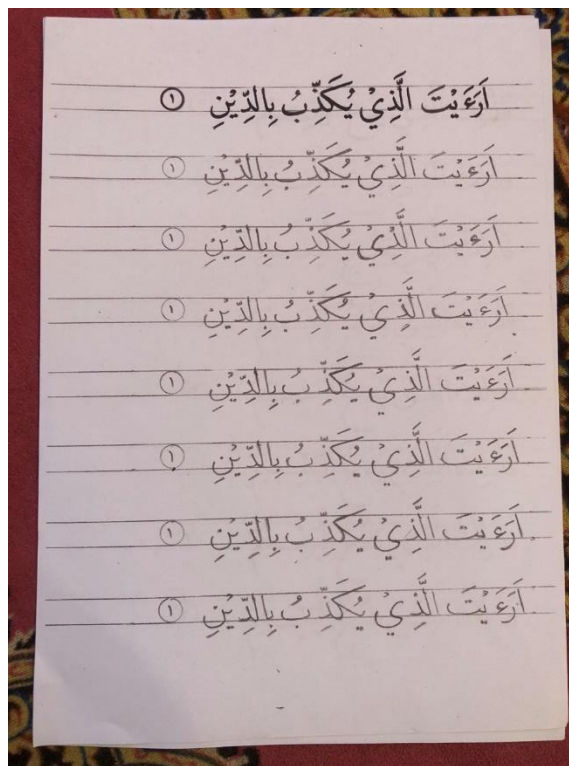 اَرَءَيْتَ الَّذِيْ يُكَذِّبُ بِالدِّيْنِ ۝١
اَرَءَيْتَ الَّذِيْ يُكَذِّبُ بِالدِّيْنِ ۝١
اَرَءَيْتَ الَّذِيْ يُكَذِّبُ بِالدِّيْنِ ۝١
اَرَءَيْتَ الَّذِيْ يُكَذِّبُ بِالدِّيْنِ ۝١
اَرَءَيْتَ الَّذِيْ يُكَذِّبُ بِالدِّيْنِ ۝١
اَرَءَيْتَ الَّذِيْ يُكَذِّبُ بِالدِّيْنِ ۝١
اَرَءَيْتَ الَّذِيْ يُكَذِّبُ بِالدِّيْنِ ۝١
اَرَءَيْتَ الَّذِيْ يُكَذِّبُ بِالدِّيْنِ ۝١